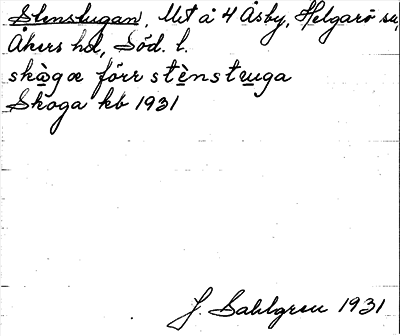 Stenstugan, Ust å 4 Åsby, Helgarö sn,
Åkers hd, Söd. l.
skògæ förr stènstuga
Skoga kb 1931
J. Sahlgren 1931